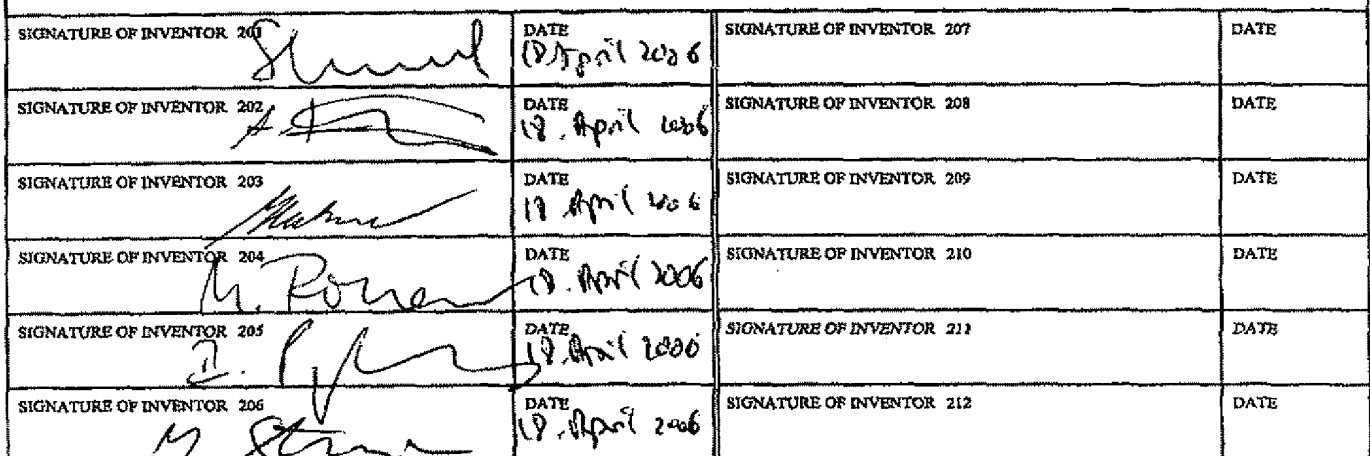 SIGNATURE OF INVENTOR 201 DATE SIGNATURE OF INVENTOR 207 DATE
18 April 2006
SIGNATURE OF INVENTOR 202 DATE SIGNATURE OF INVENTOR 208 DATE
A. 18. April 2006
SIGNATURE OF INVENTOR 203 DATE SIGNATURE OF INVENTOR 209 DATE
18 April 2006
SIGNATURE OF INVENTOR 204 DATE SIGNATURE OF INVENTOR 210 DATE
M. 18. April 2006
SIGNATURE OF INVENTOR 205 DATE SIGNATURE OF INVENTOR 211 DATE
18. April 2006
SIGNATURE OF INVENTOR 206 DATE SIGNATURE OF INVENTOR 212 DATE
M 18. April 2006